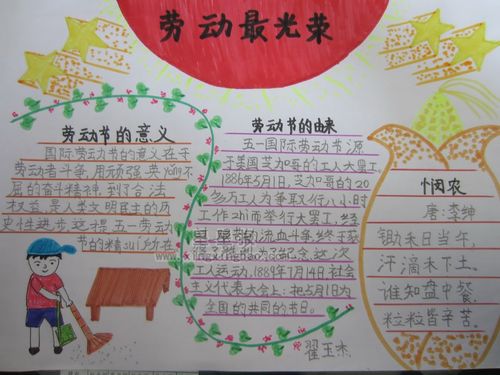 劳动最光荣
劳动节的意义
国际劳动节的意义在于
劳动者斗争,用顽强、英yǒng不
屈的奋斗精神,到了合法
权益,是人类文明民主的历
史性进步,这提五一劳动
节的精suǐ所在
劳动节的由来
五一国际劳动节源
于美国芝加哥的工人大罢工。
1886年5月1日,芝加哥的20
多万工人为争取八小时
工作zhì而举行大罢工,经
的流血斗争,终于获
为了纪念这次
工人运动,1889年7月14日,社会
主义代表大会上:把5月1日为
全国的共同的节日。
翟玉杰
悯农
唐:李绅
锄禾日当午,
汗滴禾下土。
谁知盘中餐,
粒粒皆辛苦。